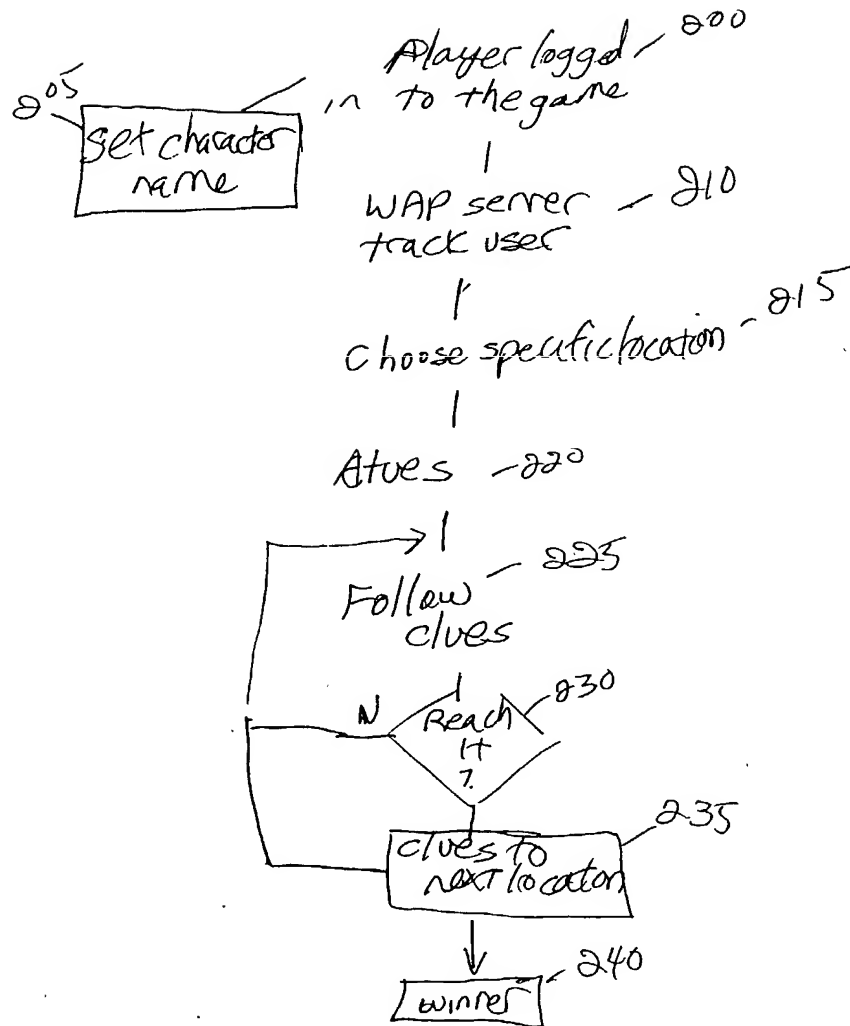 Player logged
200
in to the game
205
Set character
name
WAP server
210
track user
215
Choose specific location
220
Follow
225
clues
230
N
Reach
it
?
235
clues to
next location
240
winner